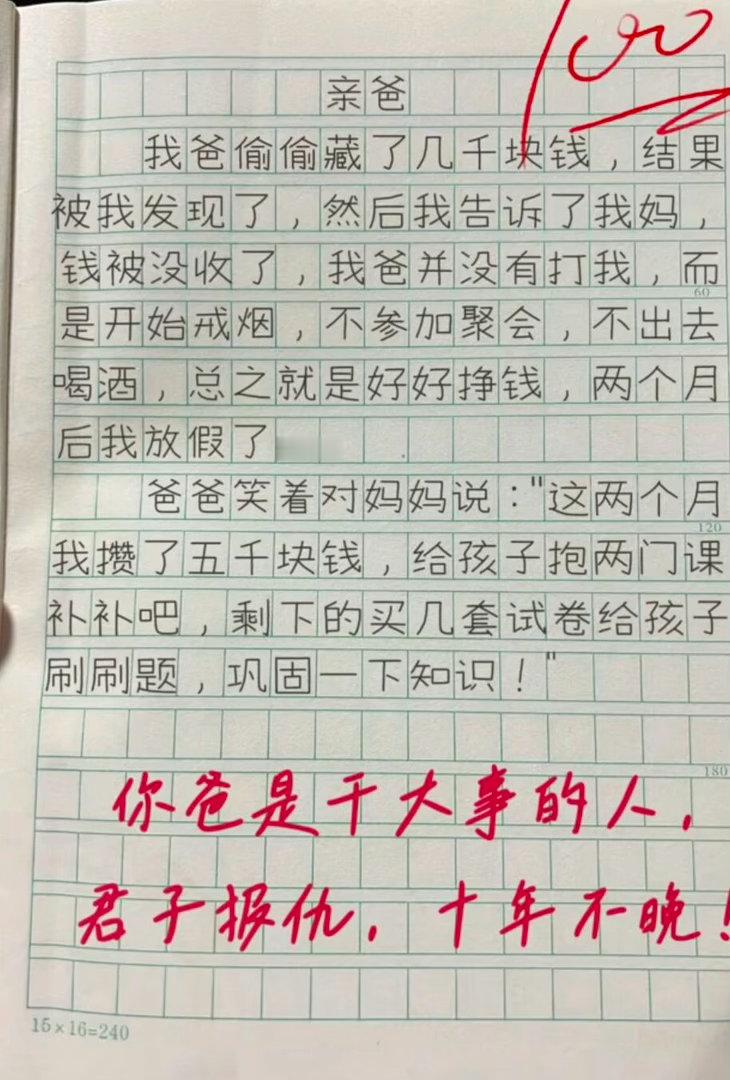 100
亲爸
我爸偷偷藏了几千块钱，结果
被我发现了，然后我告诉了我妈，
钱被没收了，我爸并没有打我，而
60
是开始戒烟，不参加聚会，不出去
喝酒，总之就是好好挣钱，两个月
后我放假了
爸爸笑着对妈妈说："这两个月
120
我攒了五千块钱，给孩子抱两门课
补补吧，剩下的买几套试卷给孩子
刷刷题，巩固一下知识！"
180
你爸是干大事的人，
君子报仇，十年不晚！
15×16=240